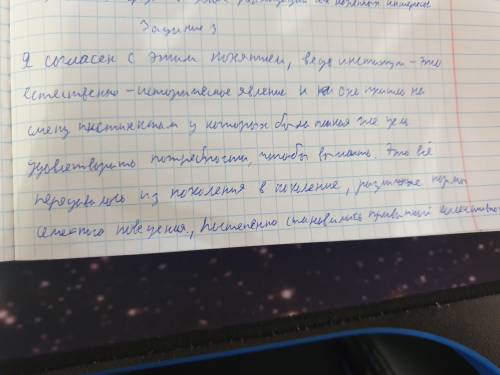 Задание 3
Я согласен с этим понятием, ведь институт - это
естественно-историческое явление и оно пришло на
смену инстинктам у которых была такая же цель
удовлетворить потребности, чтобы выжить. Это всё
передавалось из поколения в поколение, различные нормы
семейного поведения, постепенно становились